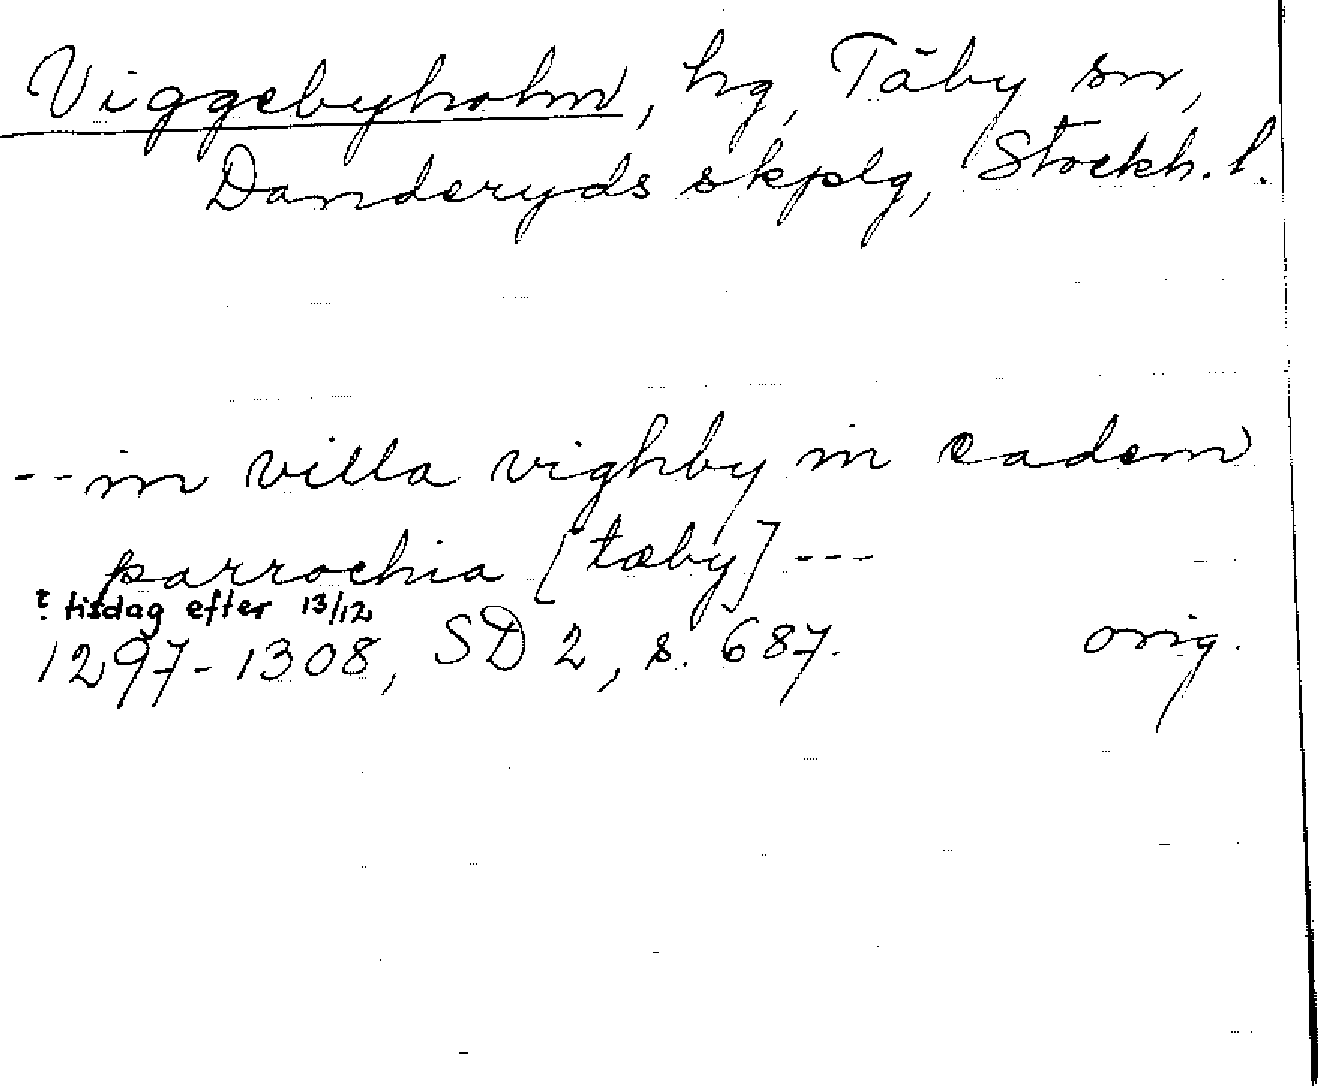 Viggebyholm, hg, Täby sn,
Danderyds skplg, Stockh. l.
--in villa vighby in eadem
parrochia [tæby]---
? tisdag efter 13/12
1297-1308, SD 2, s. 687. orig.